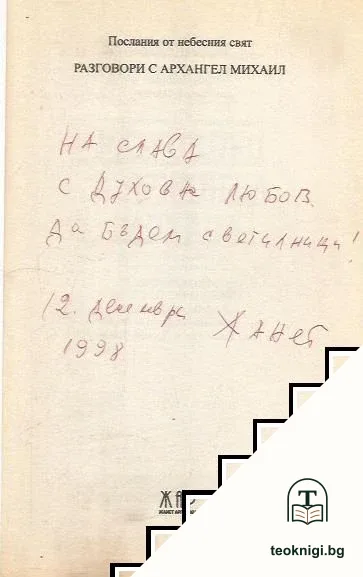 Послания от небесния свят
РАЗГОВОРИ С АРХАНГЕЛ МИХАИЛ
НА СЛАВА
С ДУХОВНА ЛЮБОВ.
Да бъдем светилници!
12. декември ЖАНЕТ
1998
T
teoknigi.bg